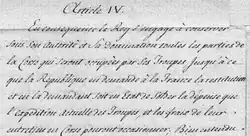 Article IV.
En consequence le Roy s'engage a conserver
sous son autorité et sa Domination toutes les parties de
la Corse qui seront occupées par ses Troupes jusqu'à ce
que la République en demande à la France la restitution
et en la demandant, soit en Etat de solder la dépense que
l'expédition actuelle des Troupes, et les frais de leur
entretien en Corse pourront occasionner. Bien entendu